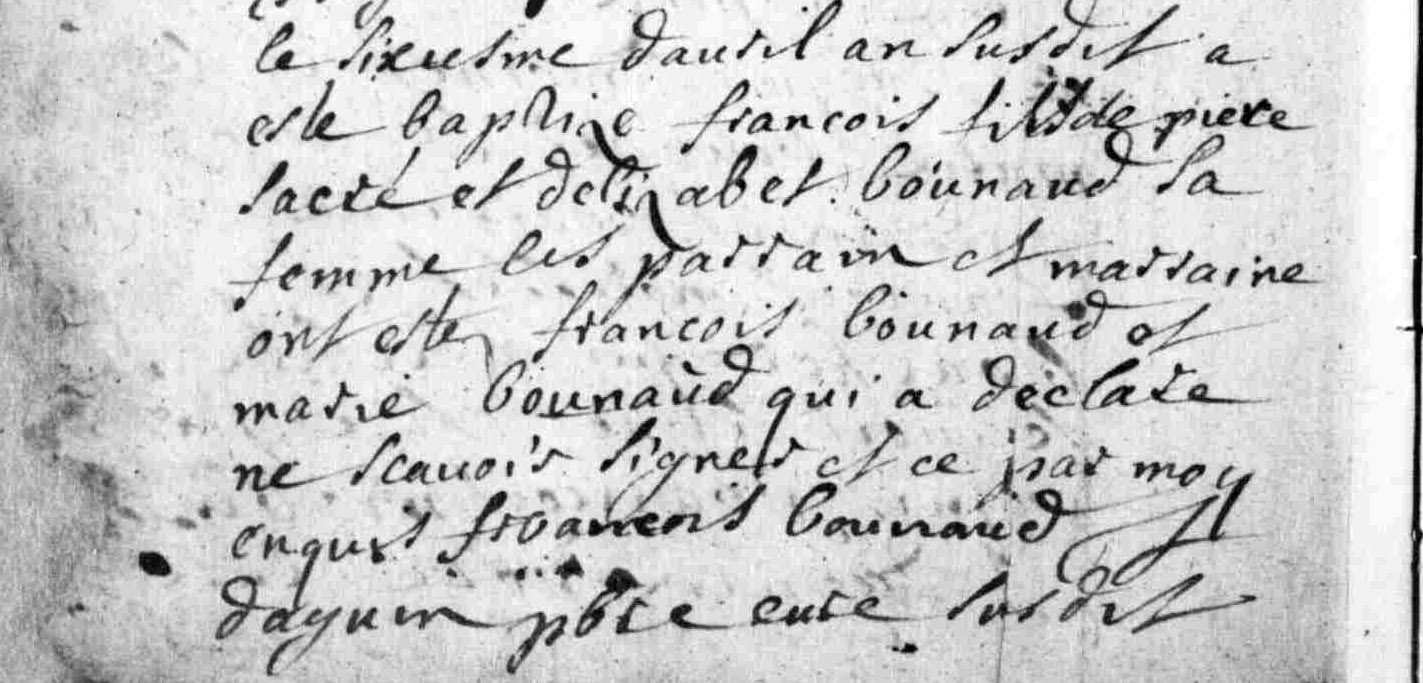 le sixiesme dauril an susdit a
este baptize francois fils de piere
sacré et delizabet bounaud sa
femme les parrain et marraine
ont este francois bounaud et
marie bounaud qui a declare
ne scauoir signer et ce par moy
enquis francois bounaud
daguin pbre cure susdit